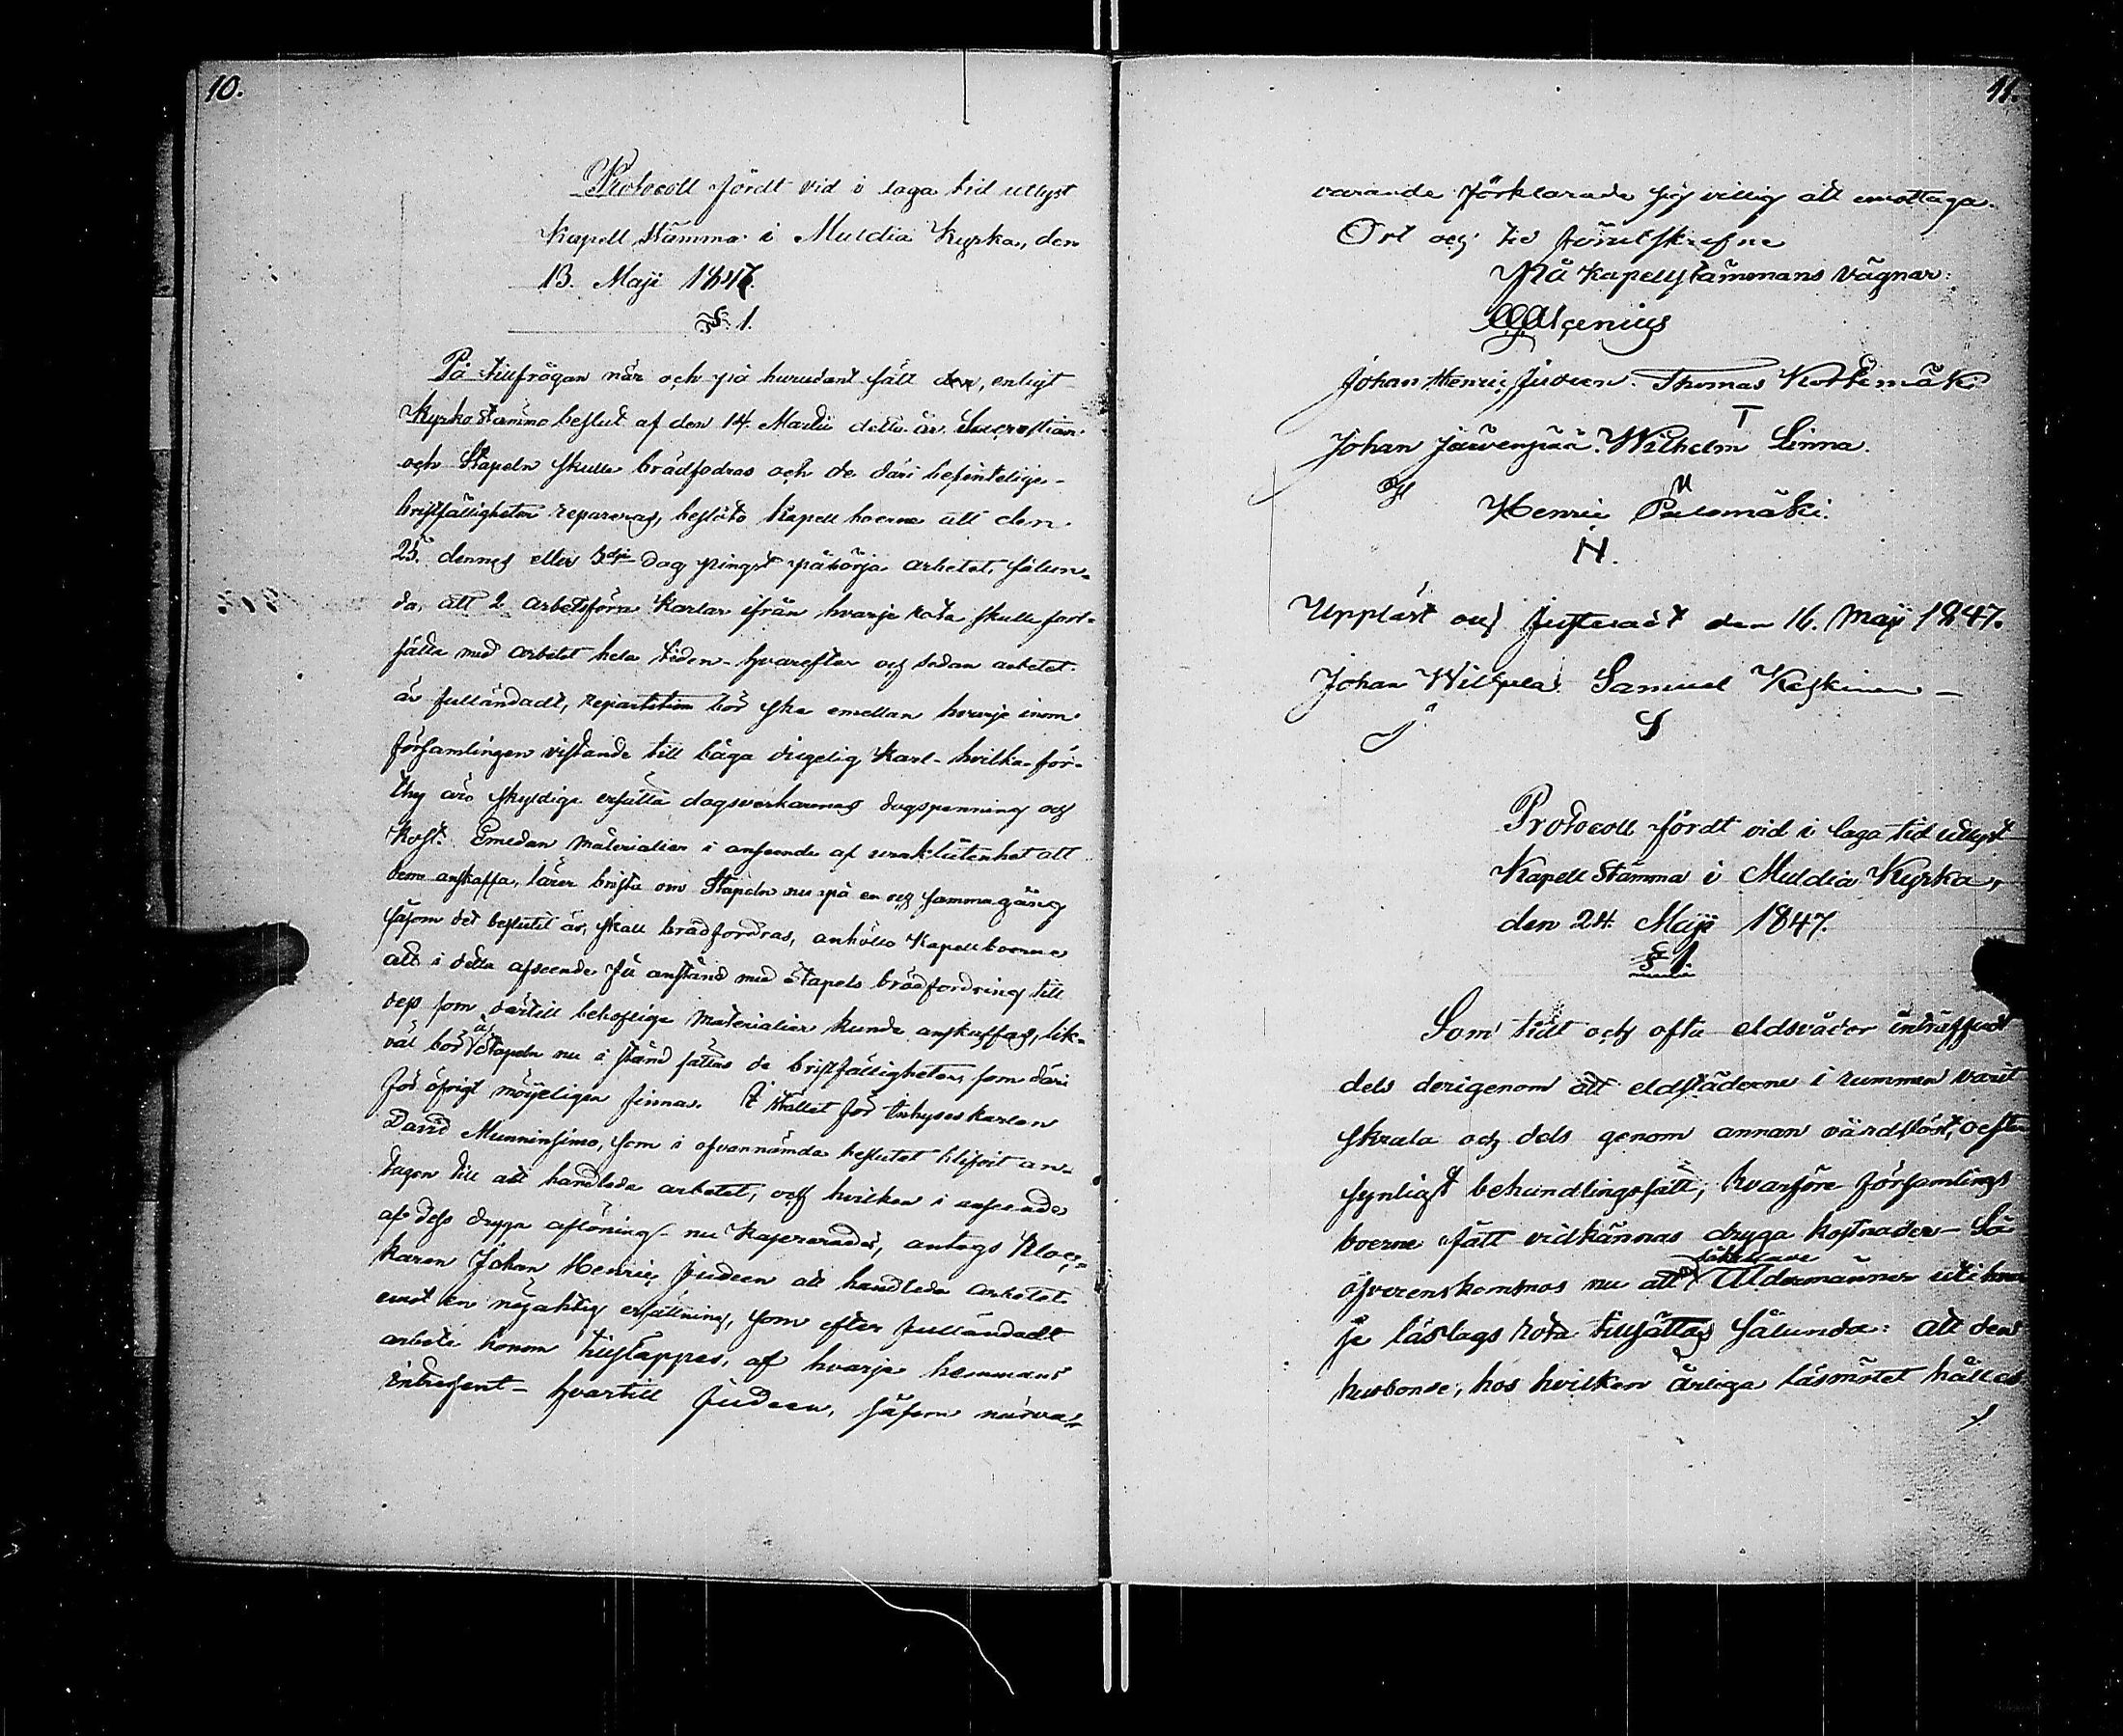 10.
Protocoll fördt vid i laga tid utlyst
Kapell Stämma i Muldia Kyrka, den
13. Maji 1847.
§. 1.
På tillfrågan når och på hurudant sätt den, enligt
Kyrkostämmo beslut af den 14 Martii detta år Sacrostian
och Stapeln skulle brädfodras och de däri befintelige
bristfälligheter repareras, beslöto Kapellboerne att den
25. dennes eller 3dje dag pingst påbörja arbetet, sålun-
da, att 2 arbetsföra Karlar ifrån hvarje rota skulle fort-
sätta med arbetet hela tiden - hvarefter och sedan arbetet
är fulländadt, repartition bör ske emellan hvarje inom
församlingen vistande till båga dugelig Karl - hvilka för-
thy äro skyldige ersätta dagsverkarnas dagspenning och
kost. Emedan materialier i anseende af svårluitenhet att
dem anskaffa, lärer brista om Stapeln nu på en och samma gång
såsom det beslutit är, skall brädfordras, anhöllo Kapellboerne
att i detta afseende få anstånd med Stapels brädfordring till
dess som därtill behöflige materialier kunde anskaffas, lik-
väl bör å Stapeln nu i stånd sättas de bristfälligheter, som däri
för öfrigt möjeligen finnas. I stället för Inhyses karlen
David Munninsimo, som i ofvannämda beslutet blifvit an-
tagen till att handleda arbetet, och hvilken i anseende
af dess dryga aflöning nu kasserades, antogs Kloc-
karen Johan Henric Judeen att handleda arbetet
emot en nöjaktig ersättning, som efter fulländadt
arbete honom tillsläppes, af hvarje hemmans
intressent - hvartill Judeen, såsom närva-
11.
varande förklarade sig villig att emottaga.
Ort och tid förutskrefne
På Kapellstämmans vägnar:
Algenius
Johan Henric Judeen. Thomas Kottimäki
T
Johan Järvenpää. Wilhelm Linna.
Henric Palomäki.
H.
Uppläst och Justeradt den 16. Maji 1847.
Johan Wilhula Samuel Keskinen
J. S
Protocoll fördt vid i laga tid utlyst
Kapell Stämma i Muldia Kyrka,
den 24. Maji 1847.
§ 1.
Som tidt och ofta eldsvådor inträffadt
dels derigenom att eldstäderne i rummen varit
skrala och dels genom annan vårdslöst, oefter
synligt behandlingssätt, hvarföre församlings
boerne fått vidkännas dryga kostnader - Så
öfverenskommos nu att Åldermänner uti hvar
je läslags rota tillsättas sålunda: att den
husbonde, hos hvilken årliga läsmötet hålles